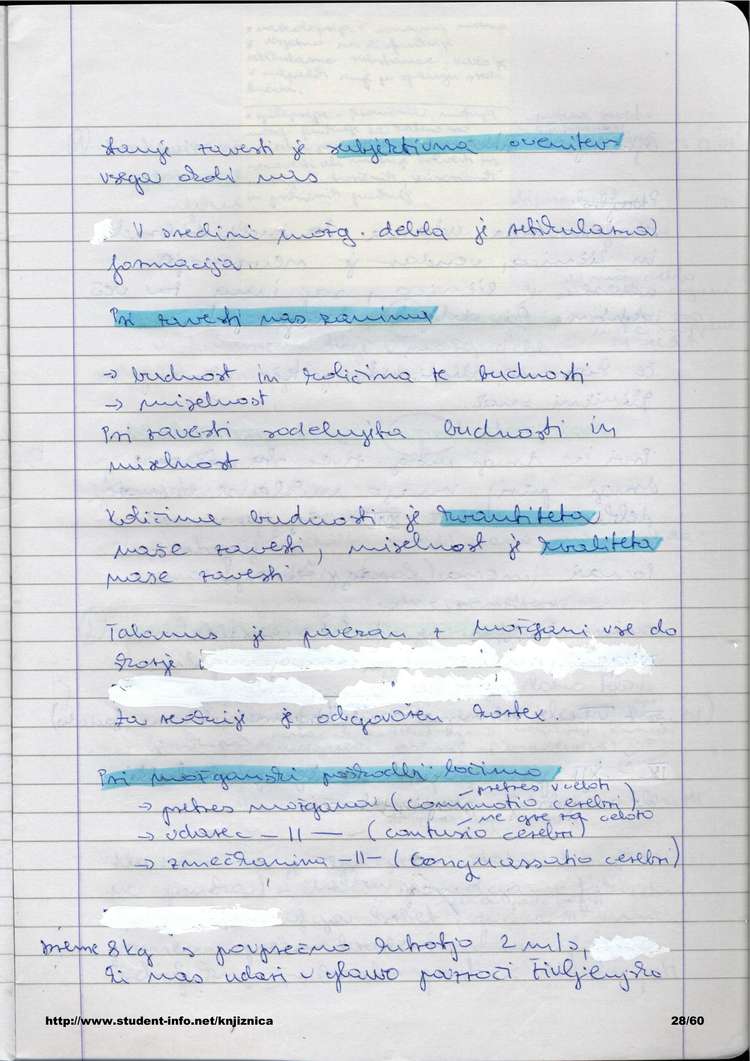 stanje zavesti je subjektivna ocenitev
vsega okoli nas
V sredini možg. debla je retikularna
formacija.
Pri zavesti nas zanima
→ budnost in količina te budnosti
→ miselnost
Pri zavesti sodelujeta budnost in
miselnost
Količina budnosti je kvantiteta
naše zavesti, miselnost je kvaliteta
naše zavesti
Talamus je povezan z možgani vse do
skorje
za reakcije je odgovoren korteks.
Pri možganski poškodbi ločimo
- pretres v celoti
→ pretres možganov (commotio cerebri)
- ne gre za celoto
→ udarec -||- (contusio cerebri)
→ zmečkanina -||- (conquassatio cerebri)
breme 8kg s povprečno hitrostjo 2 m/s,
ki nas udari v glavo povzroči življenjsko
http://www.student-info.net/knjiznica
28/60